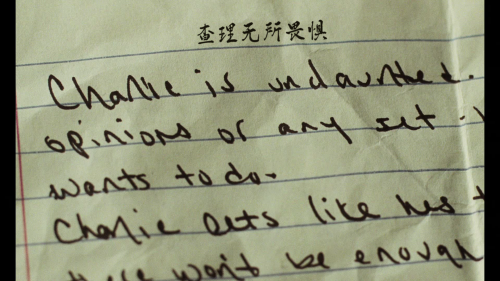 查理无所畏惧
Charlie is undaunted.
opinions or any set
wants to do.
Charlie acts like has
there won't be enough